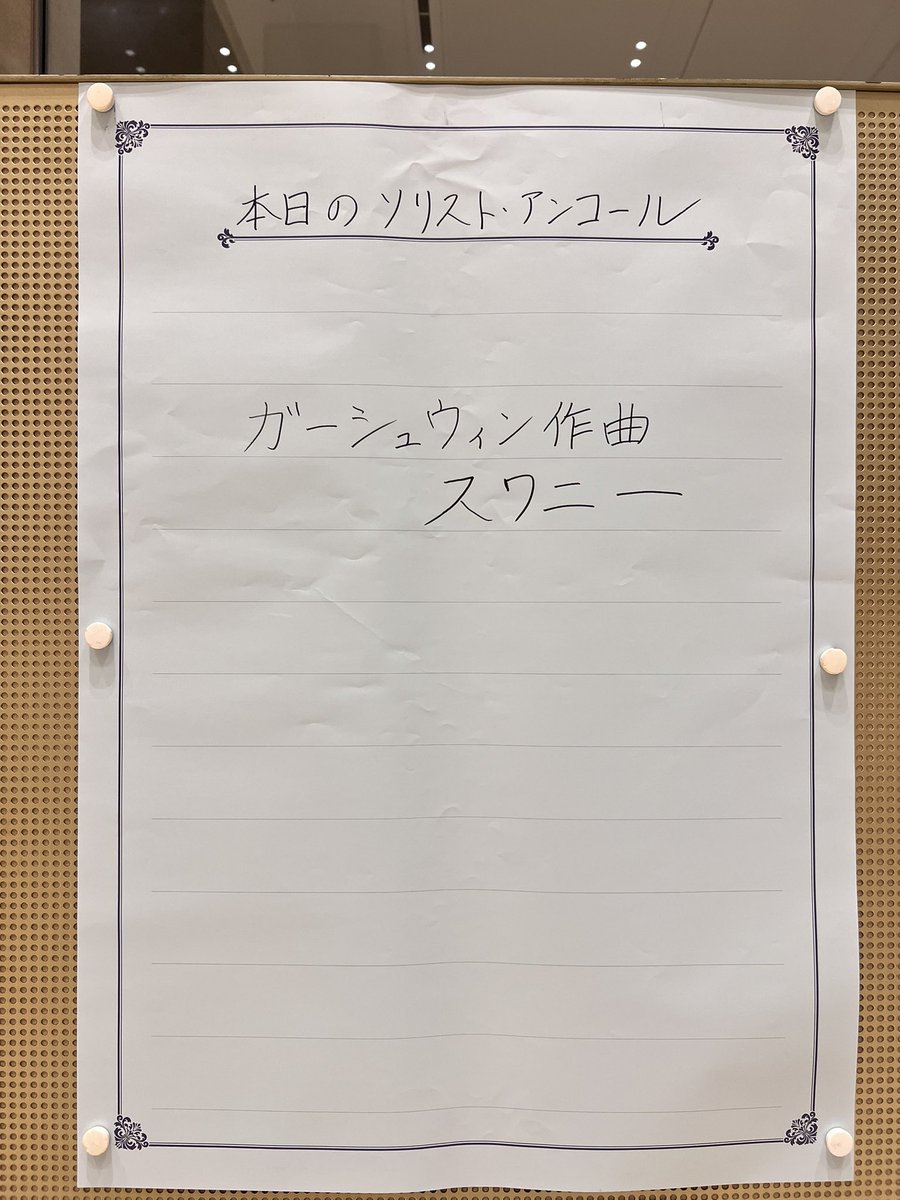 本日のソリスト・アンコール
ガーシュウィン作曲
スワニー